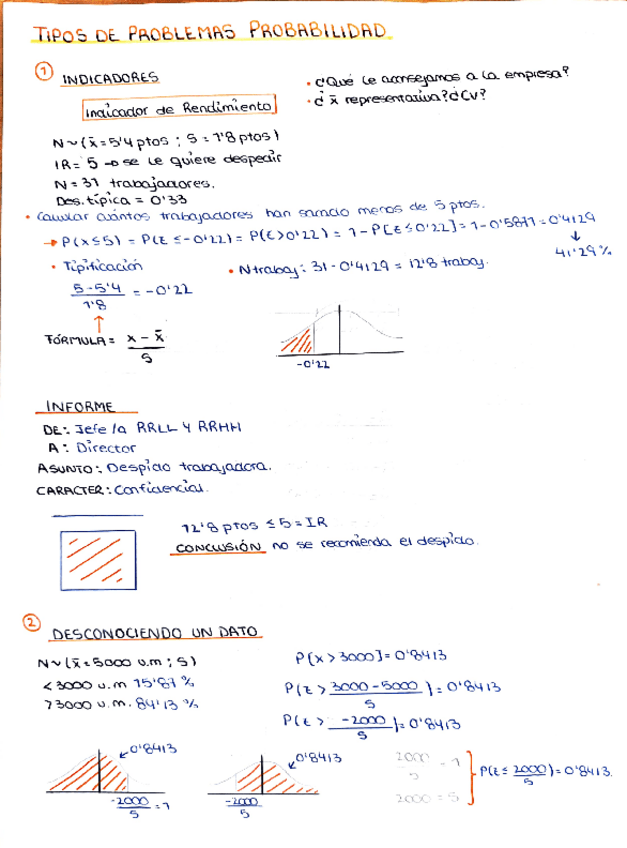 TIPOS DE PROBLEMAS PROBABILIDAD
① INDICADORES
Indicador de Rendimiento
• ¿Qué le aconsejamos a la empresa?
• ¿ x̄ representativa? ¿CV?
N~(x̄=5'4 ptos ; S=1'8 ptos)
IR= 5 → se le quiere despedir
N=31 trabajadores.
Des. típica = 0'33
• Calcular cuántos trabajadores han sacado menos de 5 ptos.
→ P(x≤5) = P(t ≤ -0'22) = P(t>0'22) = 1 - P[t ≤ 0'22] = 1-0'5871 = 0'4129
↓
41'29%
• Tipificación
5-5'4 / 1'8 = -0'22
• Ntrabaj: 31 · 0'4129 = 12'8 trabaj.
↑
FÓRMULA = x - x̄ / S
-0'22
INFORME
DE: Jefe/a RRLL Y RRHH
A: Director
ASUNTO: Despido trabajadora.
CARACTER: Confidencial.
12'8 ptos ≤ 5 = IR
CONCLUSIÓN no se recomienda el despido.
② DESCONOCIENDO UN DATO
N~(x̄=5000 u.m ; S)
<3000 u.m 15'87 %
>3000 u.m. 84'13 %
P[x > 3000] = 0'8413
P(t > 3000 - 5000 / S) = 0'8413
P(t > -2000 / S) = 0'8413
0'8413
-2000 / S = 1
0'8413
-2000 / S
2000 / S = 1
2000 = S
P(t ≤ 2000 / S) = 0'8413.